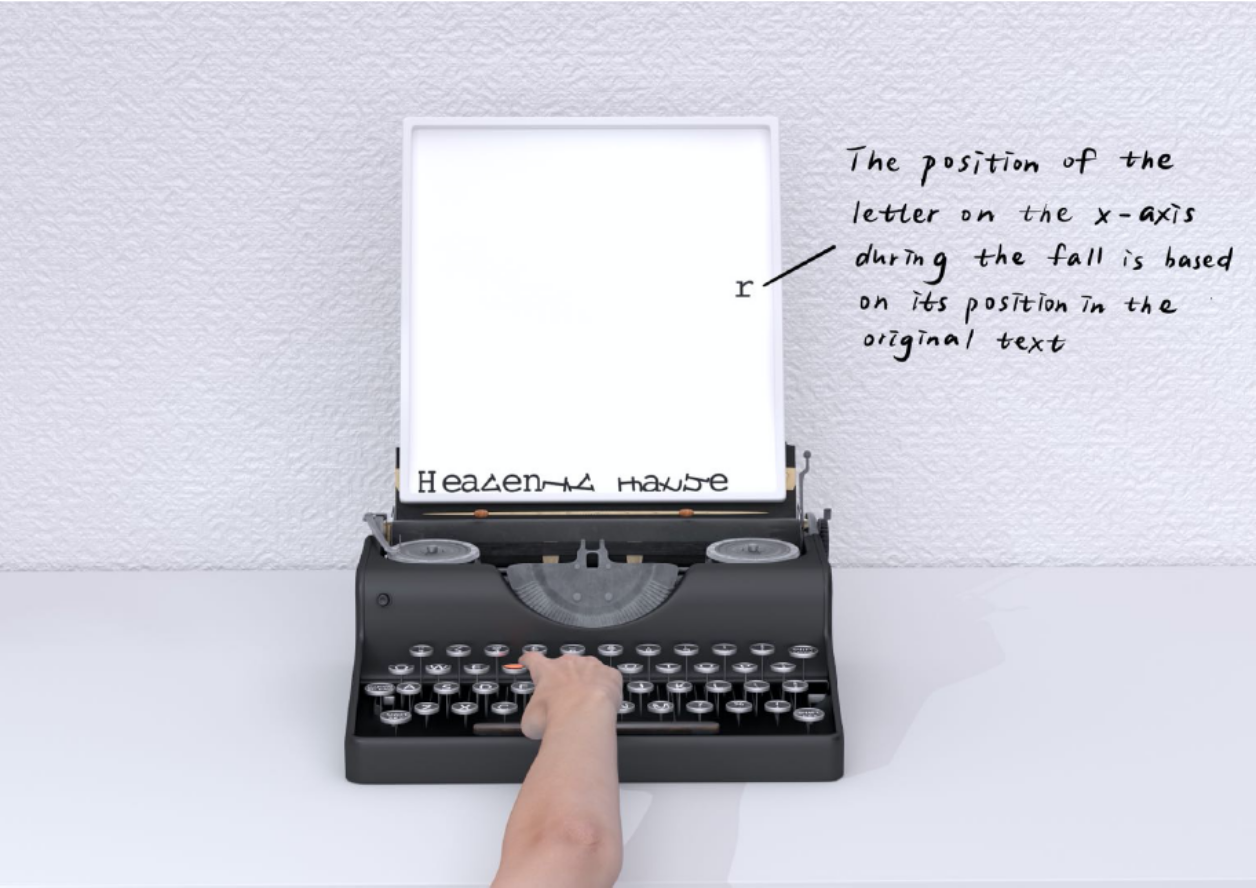 r
The position of the
letter on the x-axis
during the fall is based
on its position in the
original text